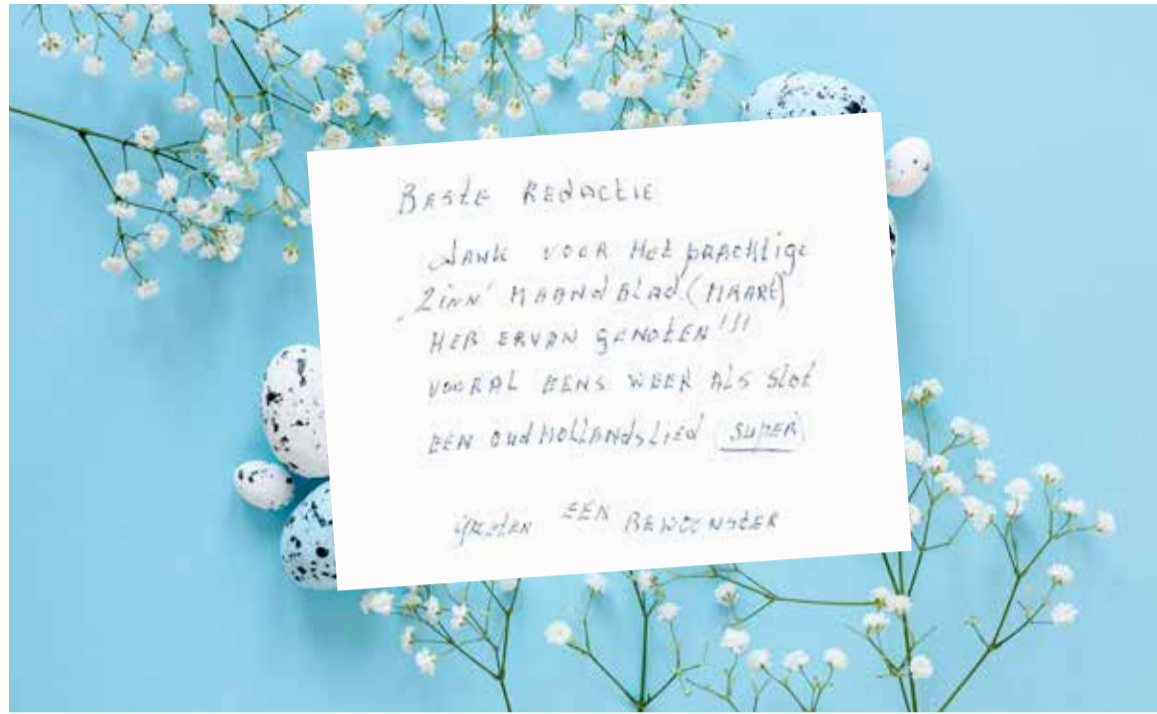 BESTE REDACTIE
DANK VOOR HET PRACHTIGE
„ZINN' MAANDBLAD (MAART)
HEB ERVAN GENOTEN!!!
VOORAL EENS WEER ALS SLOT
EEN OUD HOLLANDS LIED SUPER
GROETEN EEN BEWOONSTER